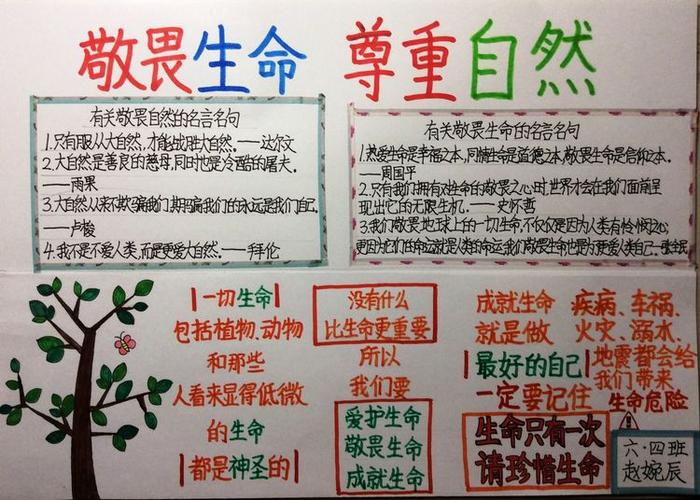 敬畏生命 尊重自然
有关敬畏自然的名言名句
1.只有服从大自然,才能战胜大自然。——达尔文
2.大自然是善良的慈母,同时也是冷酷的屠夫。
——雨果
3.大自然从来不欺骗我们,欺骗我们的永远是我们自己。
——卢梭
4.我不是不爱人类,而是更爱大自然。——拜伦
有关敬畏生命的名言名句
1.热爱生命是幸福之本,同情生命是道德之本,敬畏生命是信仰之本。
——周国平
2.只有我们拥有对生命的敬畏之心时,世界才会在我们面前呈
现出它的无限生机。——史怀哲
3.我们敬畏地球上的一切生命,不仅仅是因为人类有怜悯之心,
更因为它们的命运就是人类的命运,我们敬畏生命也是为更爱人类自己。
一切生命
包括植物、动物
和那些
人看来显得低微
的生命
都是神圣的
没有什么
比生命更重要
所以
我们要
爱护生命
敬畏生命
成就生命
成就生命
就是做
最好的自己
一定要记住
生命只有一次
请珍惜生命
疾病、车祸、
火灾、溺水、
地震都会给
我们带来
生命危险
六·四班
赵婉辰